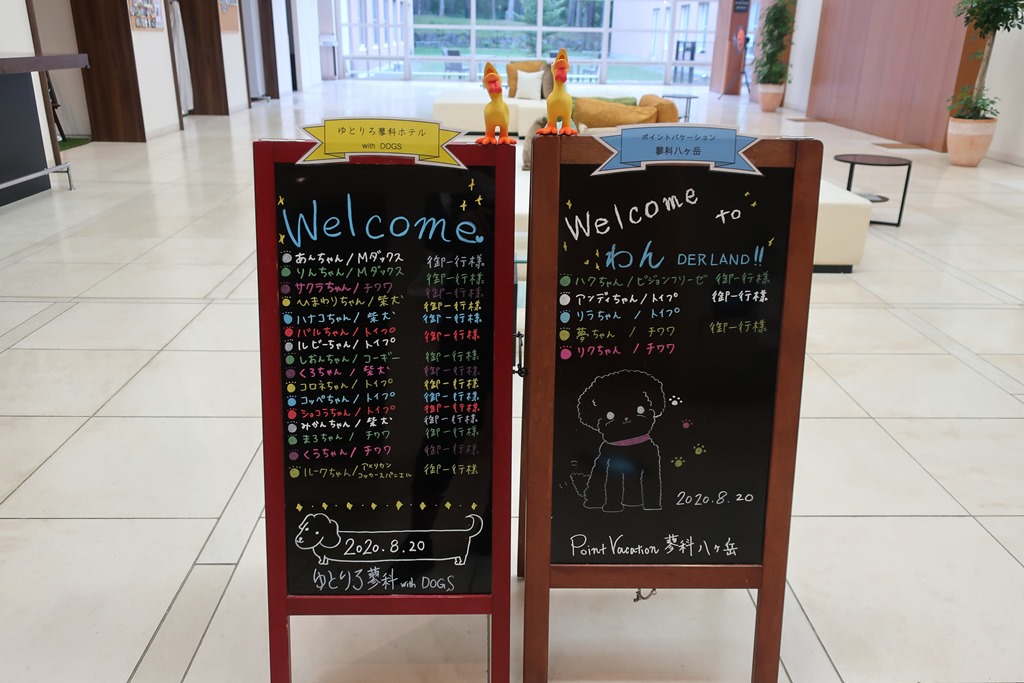 ゆとりろ蓼科ホテル
with DOGS
Welcome
あんちゃん/Mダックス 御一行様
りんちゃん/Mダックス 御一行様
サクラちゃん/チワワ 御一行様
ひまわりちゃん/柴犬 御一行様
ハナコちゃん/柴犬 御一行様
バルちゃん/トイプ 御一行様
ルビーちゃん/トイプ
しおんちゃん/コーギー 御一行様
くろちゃん/柴犬 御一行様
コロネちゃん/トイプ 御一行様
コッペちゃん/トイプ 御一行様
ショコラちゃん/トイプ 御一行様
みかんちゃん/柴犬 御一行様
まろちゃん/チワワ 御一行様
くうちゃん/チワワ 御一行様
ルークちゃん/アメリカンコッカースパニエル 御一行様
2020.8.20
ゆとりろ蓼科 with DOGS
ポイントバケーション
蓼科八ヶ岳
Welcome to
わんDERLAND!!
ハクちゃん/ビションフリーゼ 御一行様
アンディちゃん/トイプ 御一行様
リラちゃん/トイプ
夢ちゃん/チワワ 御一行様
リクちゃん/チワワ
2020.8.20
Point Vacation 蓼科八ヶ岳